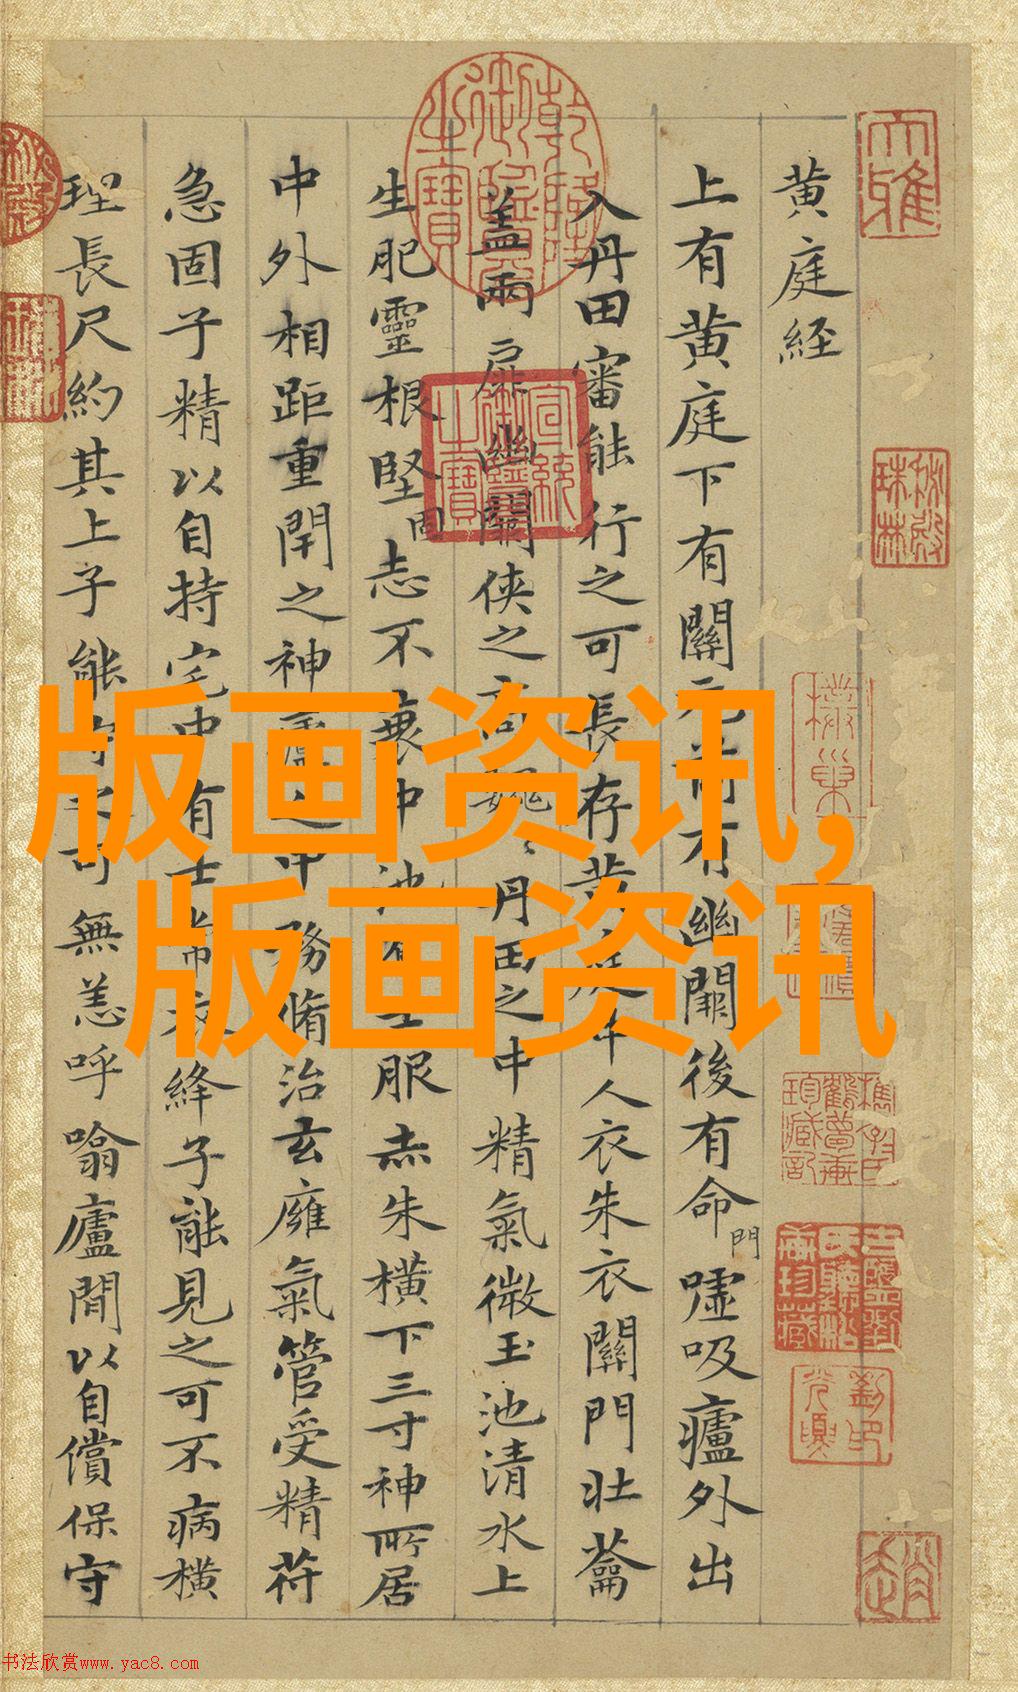 黄庭经
上有黄庭下有關元前有幽闕後有命門噓吸廬外出
入丹田審能行之可長存黄庭中人衣朱衣關門壮蘥
盖兩扉幽闕侠之高巍丹田之中精氣微玉池清水上
生肥靈根堅固志不衰中池有士服赤朱横下三寸神所居
中外相距重閈之神廬之中務脩治玄廱氣管受精苻
急固子精以自持宅中有士常衣絳子能見之可不病横
理長尺約其上子能守之可無恙呼噏廬間以自償保守
版画资讯,
版画资讯
大雅
乾隆御覽之寶
宣統御覽之寶
书法欣赏www.yac8.com